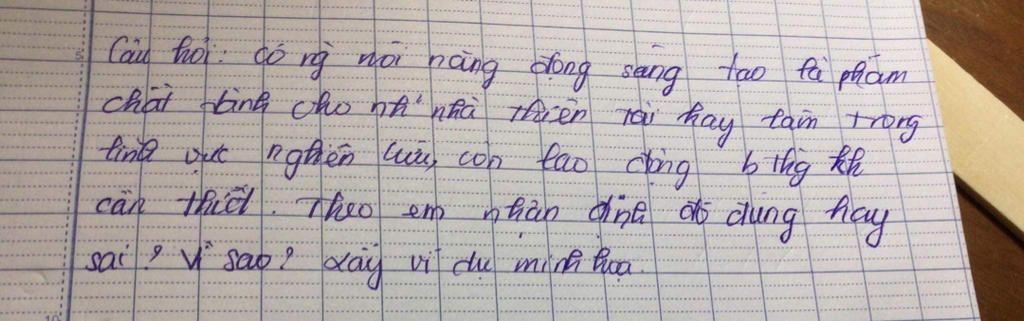 Câu hỏi: có ng nói năng động sáng tạo là phẩm
chất dành cho nh~ nhà thiên tài hay làm trong
lĩnh vực nghiên cứu, còn lao động b thg kh
cần thiết. Theo em nhận định đó đúng hay
sai? Vì sao? Lấy ví dụ minh họa.